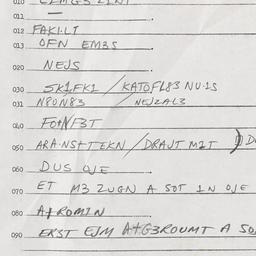 011 —
012 FAKILT
013 OFN EM3S
020 NEJS
030 SK1FK1 / KATOFL83 NU1S
031 N80N83 NEJZAL3
040 FOTNF3T
050 ARANSTTEKN / DRAJT M2T
060 DUS OJE
070 ET M3 ZUGN A SOT IN OJE
080 ATROMIN
090 EKST EJM ATG3ROUMT A SO